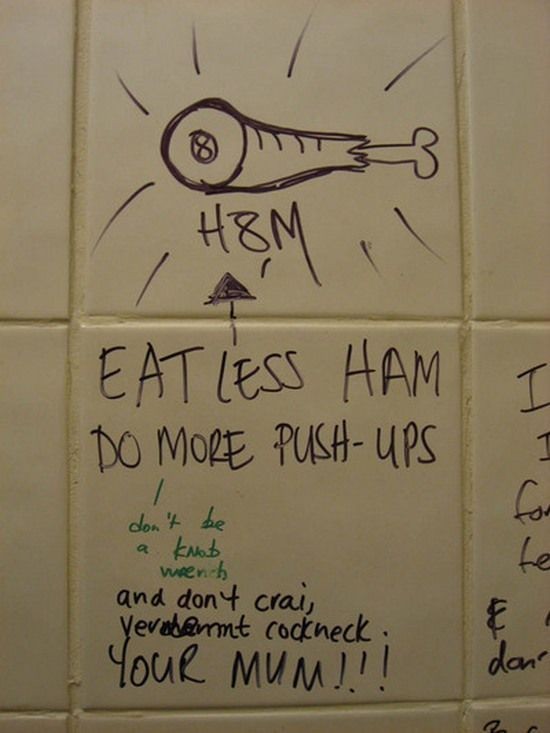 8
H8M
EAT LESS HAM
DO MORE PUSH-UPS
don't be
a knob
wrench
and don't crai,
cockneck.
YOUR MUM!!!
I
I
for
te
&
don'